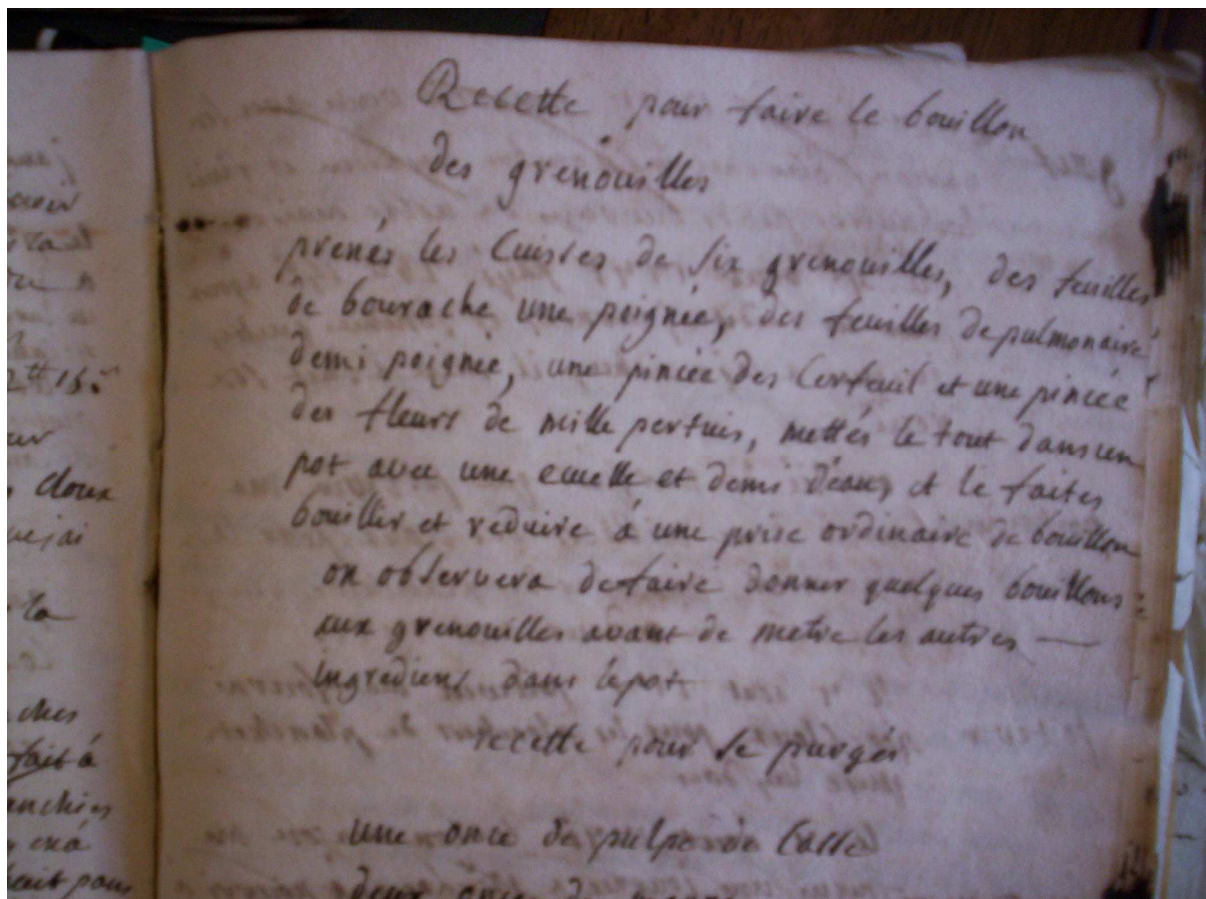 Recette pour faire le bouillon
des grenouilles
prenés les Cuisses de six grenouilles, des feuilles
de bourache une poignée, des feuilles de pulmonaire
demi poignée, une pincée des Cerfeuil et une pincée
des fleurs de mille pertuis, mettés le tout dans un
pot avec une ecuelle et demi d'eau, et le faites
bouillir et reduire à une prise ordinaire de bouillon
on observera de faire donner quelques bouillons
aux grenouilles avant de metre les autres —
ingrediens dans le pot
recette pour se purgér
une once de pulpe de Casse
deux once de
ches
fait à
clous
la